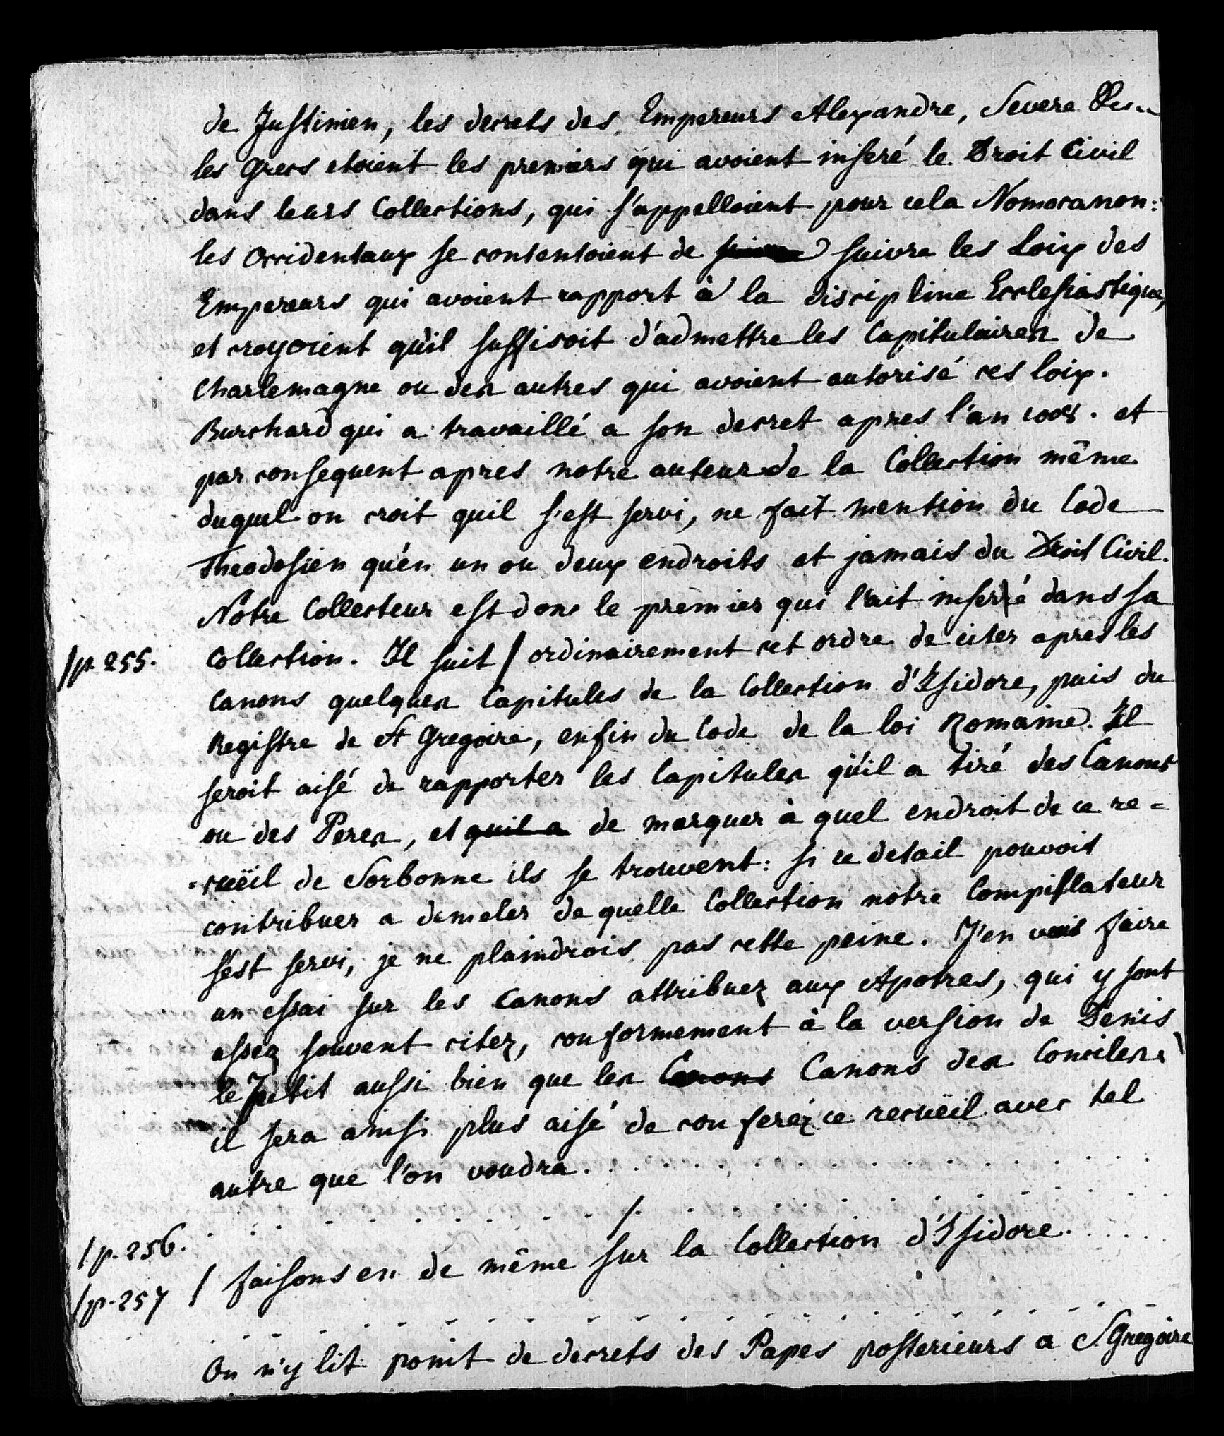 de Justinien, les decrets des Empereurs Alexandre, Severe &c
les Grecs etoient les premiers qui avoient inseré le Droit Civil
dans leurs Collections, qui s'appelloient pour cela Nomocanon:
les Occidentaux se contentoient de suivre les Loix des
Empereurs qui avoient rapport à la discipline Ecclesiastique,
et croyoient qu'il suffisoit d'admettre les Capitulaires de
Charlemagne ou des autres qui avoient autorisé ces loix.
Burchard qui a travaillé a son decret apres l'an 1008. et
par consequent apres notre auteur de la Collection même
duquel on croit quil s'est servi, ne fait mention du Code
Theodosien qu'en un ou deux endroits et jamais du Droit Civil.
Notre Collecteur est donc le premier qui l'ait inseré dans sa
/p. 255. Collection. Il suit / ordinairement cet ordre de citer apres les
Canons quelques Capitules de la Collection d'Isidore, puis du
Registre de St Gregoire, enfin du Code de la loi Romaine. Il
seroit aisé de rapporter les Capitules qu'il a tiré des Canons
ou des Peres, et quil a de marquer à quel endroit de ce re=
=cuëil de Sorbonne ils se trouvent: si ce detail pouvoit
contribuer a demeler de quelle Collection notre Compilateur
s'est servi, je ne plaindrois pas cette peine. J'en vais faire
un essai sur les Canons attribuez aux Apotres, qui y sont
assez souvent citez, conformement à la version de Denis
le Petit aussi bien que les Canons Canons des Conciles:
il sera ainsi plus aisé de conferer ce recuëil avec tel
autre que l'on voudra. . . . . . . . . . . . . . . .
/p. 256. . . . . . . . . . . / . . . . . . . . . . .
/p. 257 / faisons en de même sur la Collection d'Isidore. . . . . .
. . . . . . . . . . . . . . . . . . . . . .
On n'y lit point de decrets des Papes posterieurs a St Gregoire